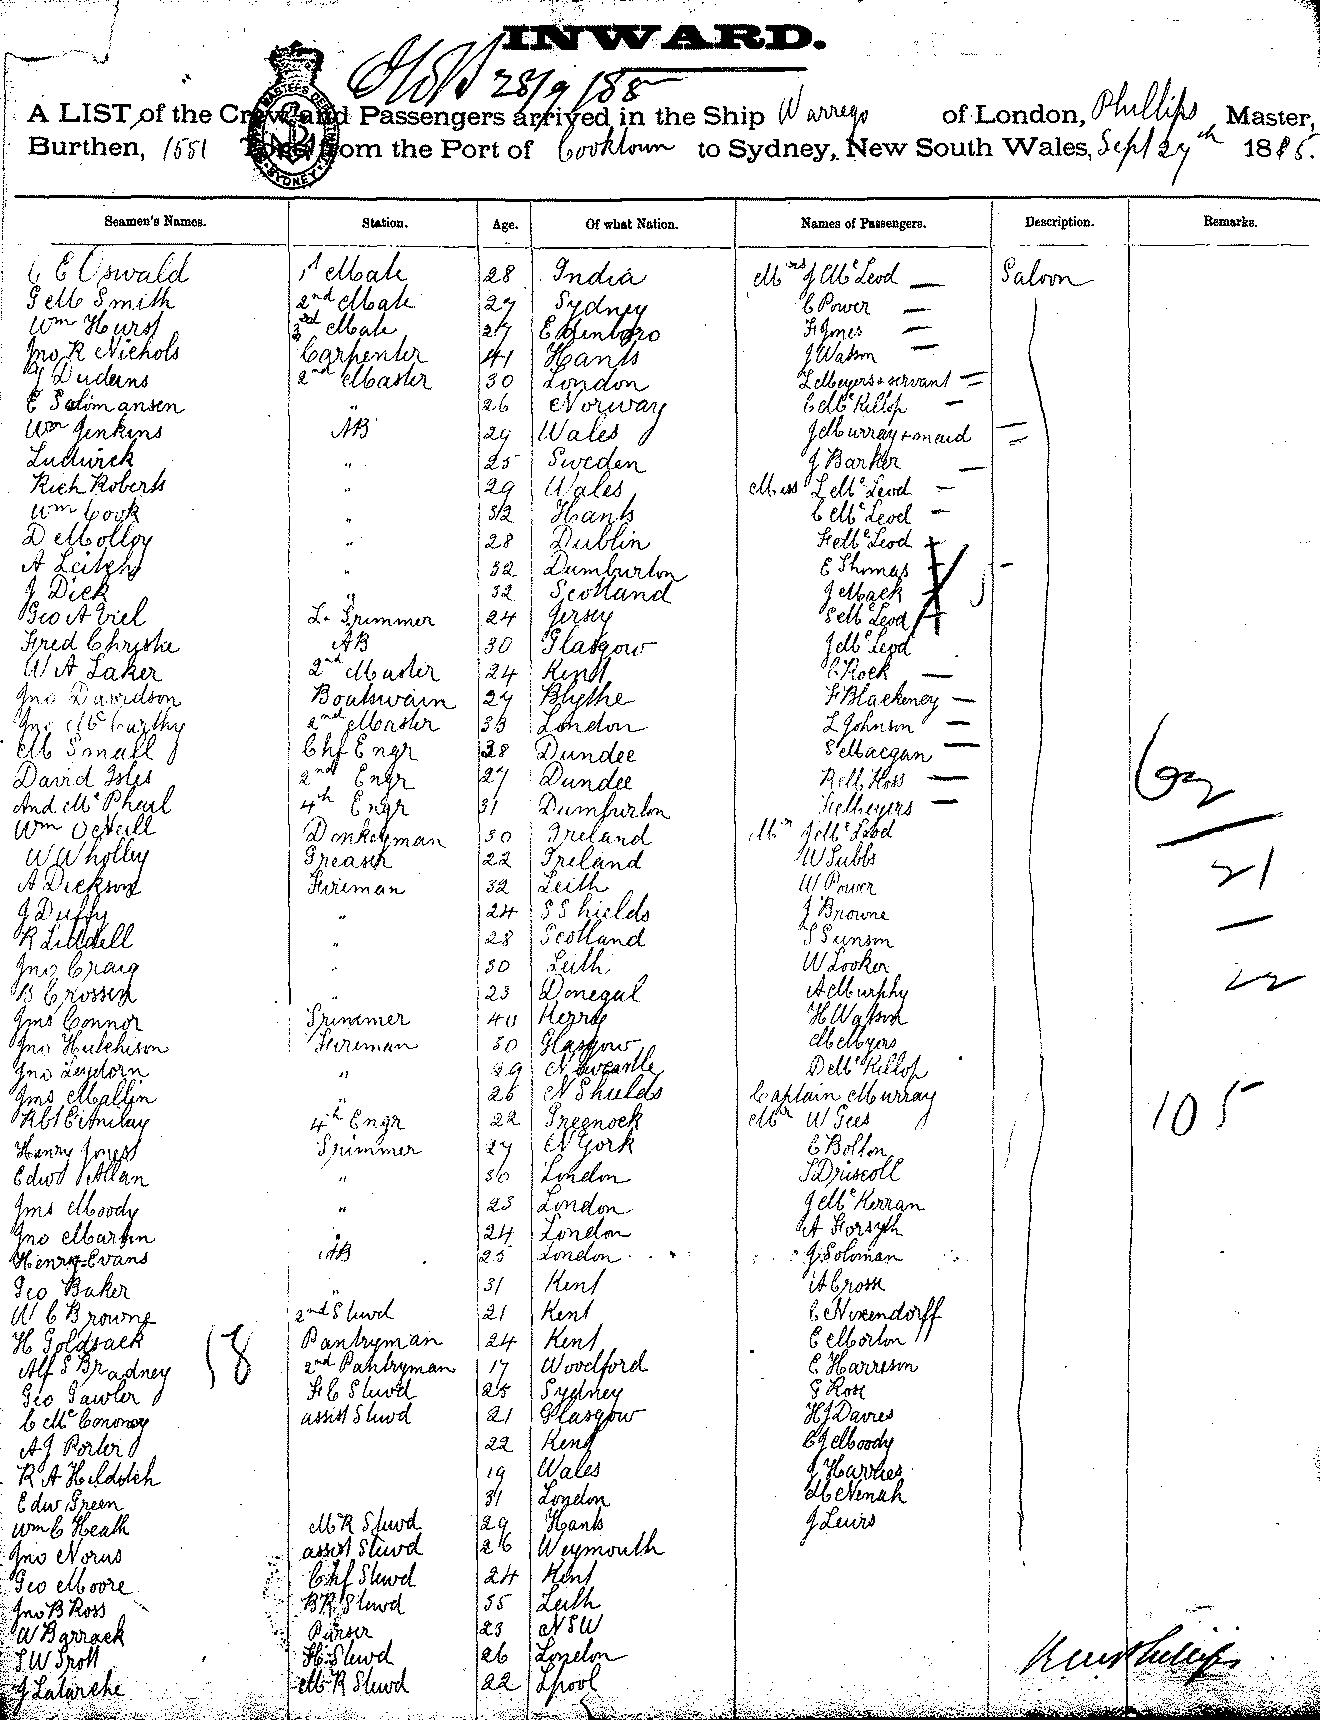 INWARD.
28/9/85
A LIST of the Crew and Passengers arrived in the Ship Warrego of London, Phillips Master,
Burthen, 1551 Tons, from the Port of Cooktown to Sydney, New South Wales, Sept 27th 1885.
Seamen's Names. Station. Age. Of what Nation. Names of Passengers. Description. Remarks.
C E Oswald 1st Mate 28 India Mrs J McLeod Saloon
G M Smith 2nd Mate 27 Sydney E Power
Wm Hurst 3rd Mate 27 Edinboro H Jones
Jno R Nichols Carpenter 41 Hants J Watson
J Duderns 2nd Master 30 London L Meyers + servant
E Salomansen " 26 Norway E McKillop
Wm Jenkins AB 29 Wales J Murray + maid
Ludwick " 25 Sweden J Barker
Rich Roberts " 29 Wales Miss L McLeod
Wm Cook " 32 Hants C McLeod
D Molloy " 28 Dublin H McLeod
A Leitch " 32 Dumburton E Thomas
J Dick " 32 Scotland J Mack
Geo A Viel L. Trimmer 24 Jersey S McLeod
Fred Christie AB 30 Glasgow J McLeod
W A Laker 2nd Master 24 Kent C Rock
Jno Davidson Boatswain 27 Blythe F Blackeney
Jno McCarthy 2nd Master 33 London L Johnson
M Small Chf Engr 38 Dundee S Macgan
David Isles 2nd Engr 27 Dundee Ross
And McPhail 4th Engr 31 Dumburton Meyers
Wm ONeill Donkeyman 30 Ireland Mr J McLeod
W Wholley Greaser 22 Ireland W Tubbs
A Dickson Fireman 32 Leith W Power
J Duffy " 24 S Shields J Browne
R Liddell " 28 Scotland S Sunson
Jno Craig " 30 Leith W Looker
B Crossen " 23 Donegal A Murphy
Jms Connor Trimmer 40 Kerry H Watson
Jno Hutchison Fireman 30 Glasgow M Myers
Jno Leydorn " 29 Newcastle D McKillop
Jms Mallin " 26 N Shields Captain Murray
Rbt 4th Engr 22 Greenock Mr W Gees
Henry Jones Trimmer 27 N York C Bolton
Edwd Allan " 30 London T Driscoll
Jms Moody " 23 London J McKerran
Jno Martin " 24 London A Forsyth
Henry Evans AB 25 London J Soloman
Geo Baker " 31 Kent A Cross
W C Browne 2nd Stwd 21 Kent C Nixendorff
H Goldsack Pantryman 24 Kent E Morton
Alf S Bradney 2nd Pantryman 17 Woodford E Harrison
Geo Gawler F C Stwd 25 Sydney G Rose
C McConomy assist Stwd 21 Glasgow H J Davies
A J Porter 22 Kent C J Moody
R A Hilditch 19 Wales J Harries
Edw Green 31 London M Nenah
Wm C Heath M R Stwd 29 Hants J Lewis
Jno Norus assist Stwd 26 Weymouth
Geo Moore Chf Stwd 24 Kent
Jno B Ross B R Stwd 35 Leith
W Barrack Purser 23 N S W
T W Trott F. Stwd 26 London
J Latarche M R Stwd 22 Lpool
62
21
22
105
18